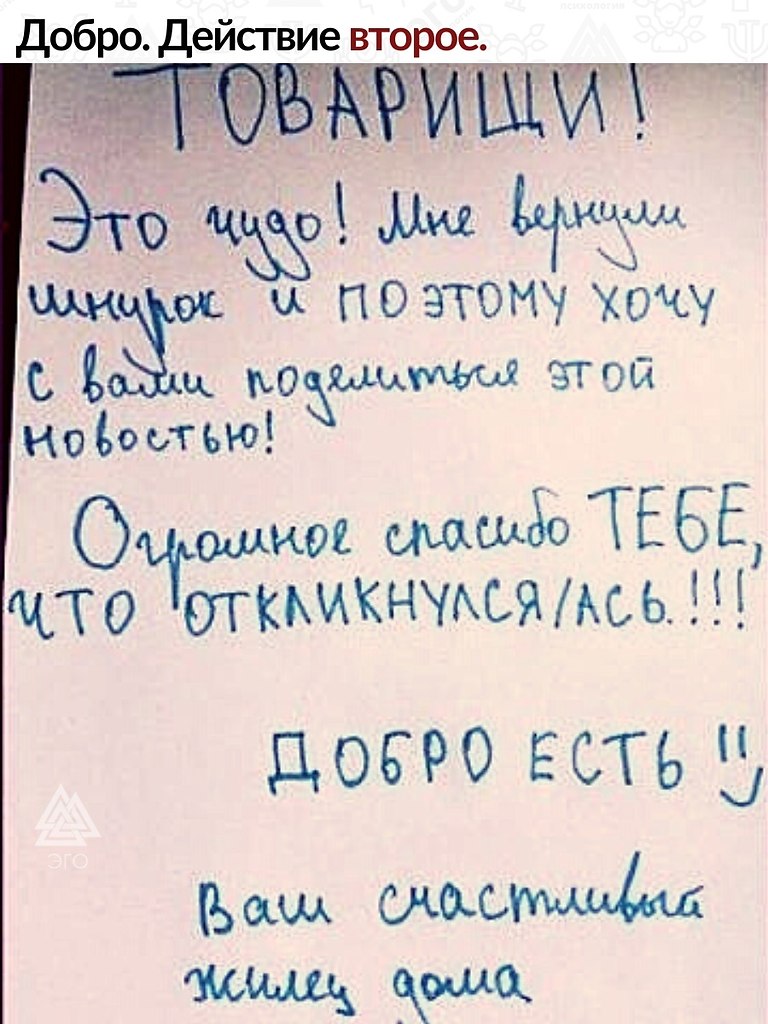 психология
Добро. Действие второе.
ТОВАРИЩИ!
Это чудо! Мне вернули
шнурок и поэтому хочу
с вами поделиться этой
новостью!
Огромное спасибо ТЕБЕ,
что откликнулся/ась.!!!
ДОБРО ЕСТЬ
ЭГО
Ваш счастливый
жилец дома